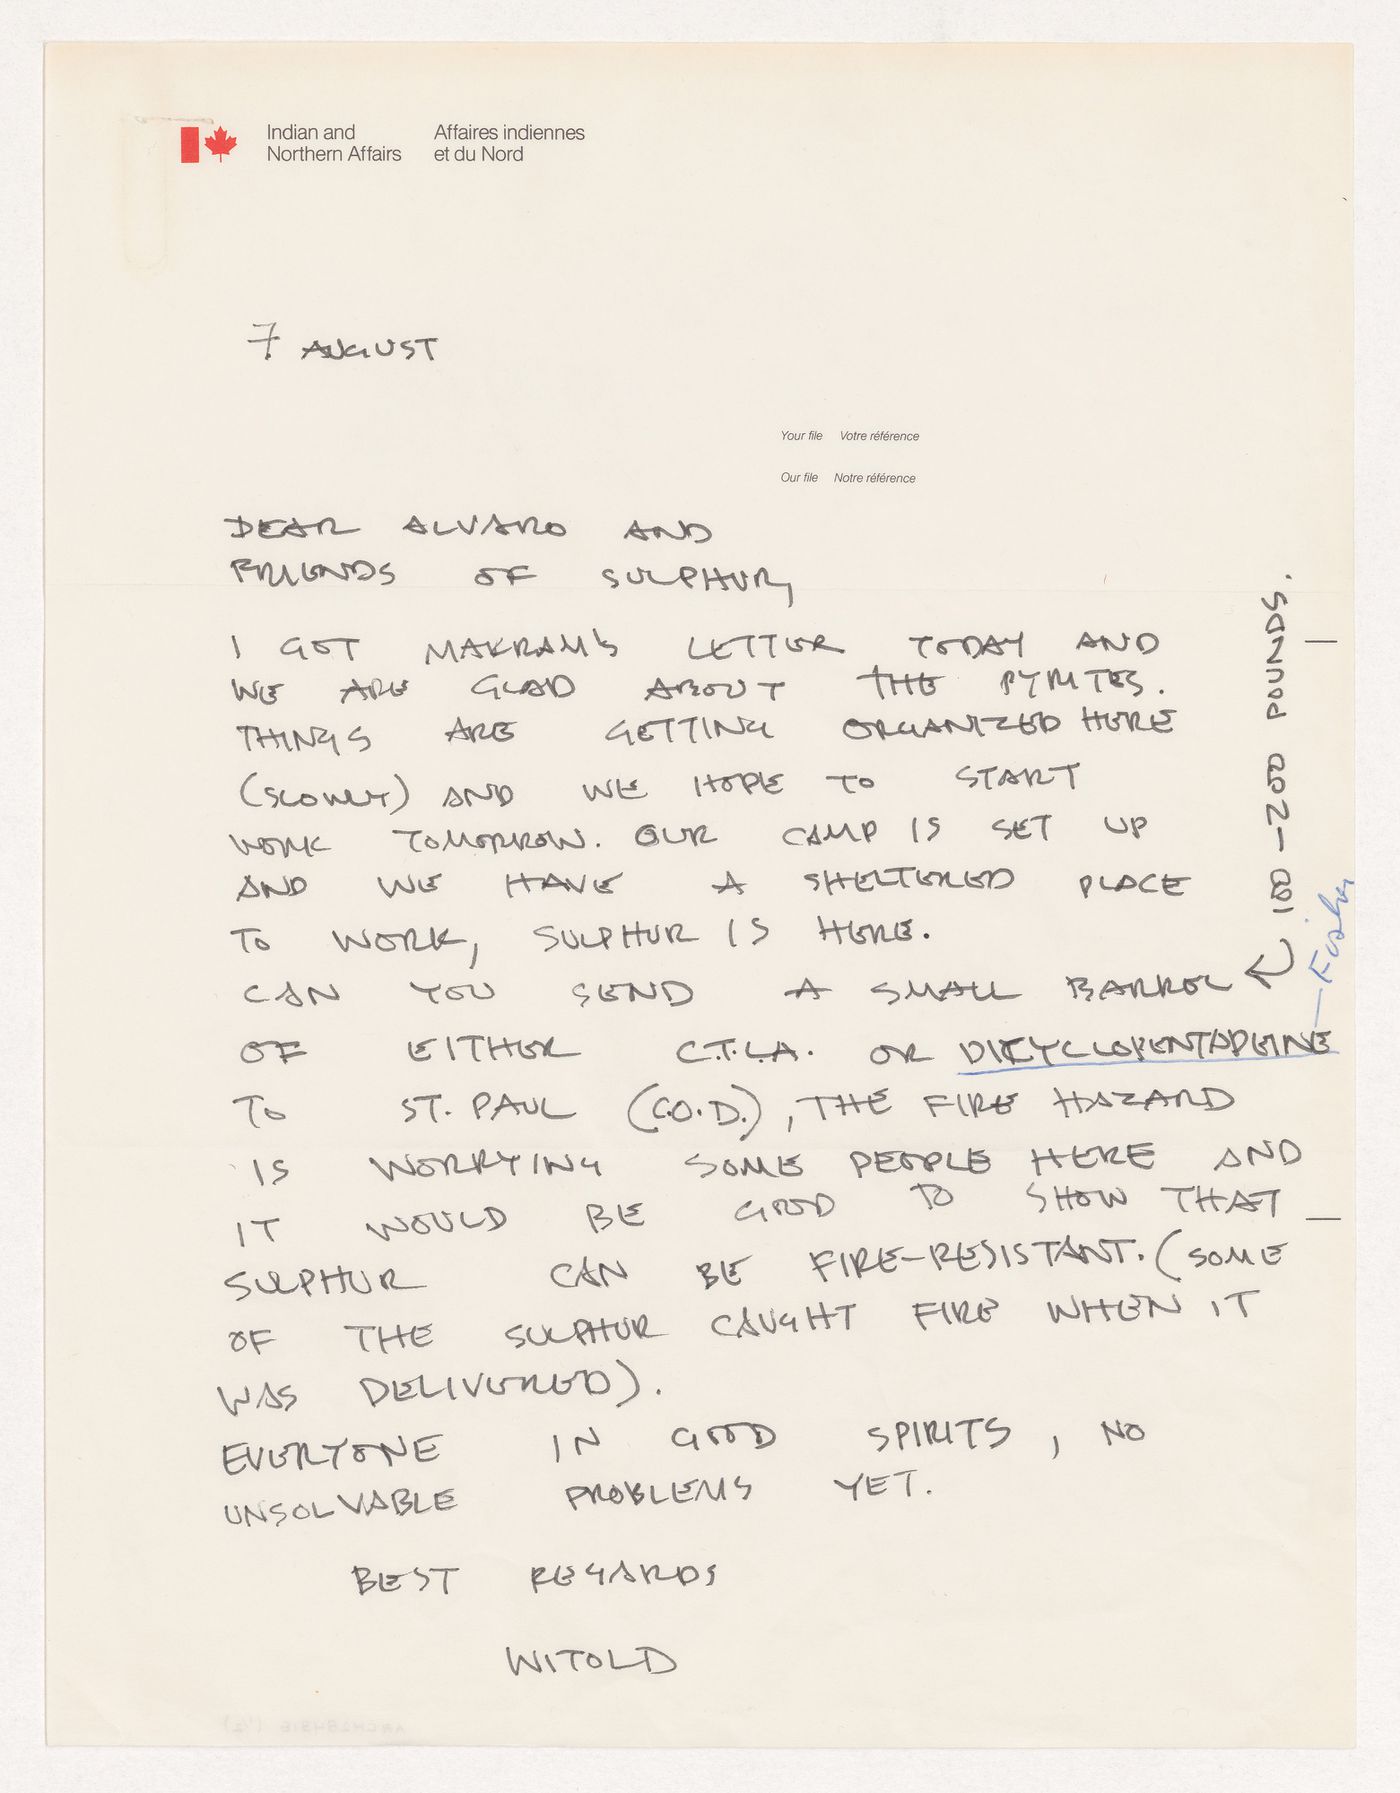 Indian and Northern Affairs
Affaires indiennes et du Nord
7 AUGUST
Your file Votre référence
Our file Notre référence
DEAR ALVARO AND
FRIENDS OF SULPHUR,
I GOT MAKRAM'S LETTER TODAY AND
WE ARE GLAD ABOUT THE PYRITES.
THINGS ARE GETTING ORGANIZED HERE
(SLOWLY) AND WE HOPE TO START
WORK TOMORROW. OUR CAMP IS SET UP
AND WE HAVE A SHELTERED PLACE
TO WORK, SULPHUR IS HERE.
CAN YOU SEND A SMALL BARREL
100-200 POUNDS.
OF EITHER C.T.L.A. OR DICYCLOPENTADEINE
TO ST. PAUL (C.O.D.), THE FIRE HAZARD
IS WORRYING SOME PEOPLE HERE AND
IT WOULD BE GOOD TO SHOW THAT
SULPHUR CAN BE FIRE-RESISTANT. (SOME
OF THE SULPHUR CAUGHT FIRE WHEN IT
WAS DELIVERED).
EVERYONE IN GOOD SPIRITS, NO
UNSOLVABLE PROBLEMS YET.
BEST REGARDS
WITOLD